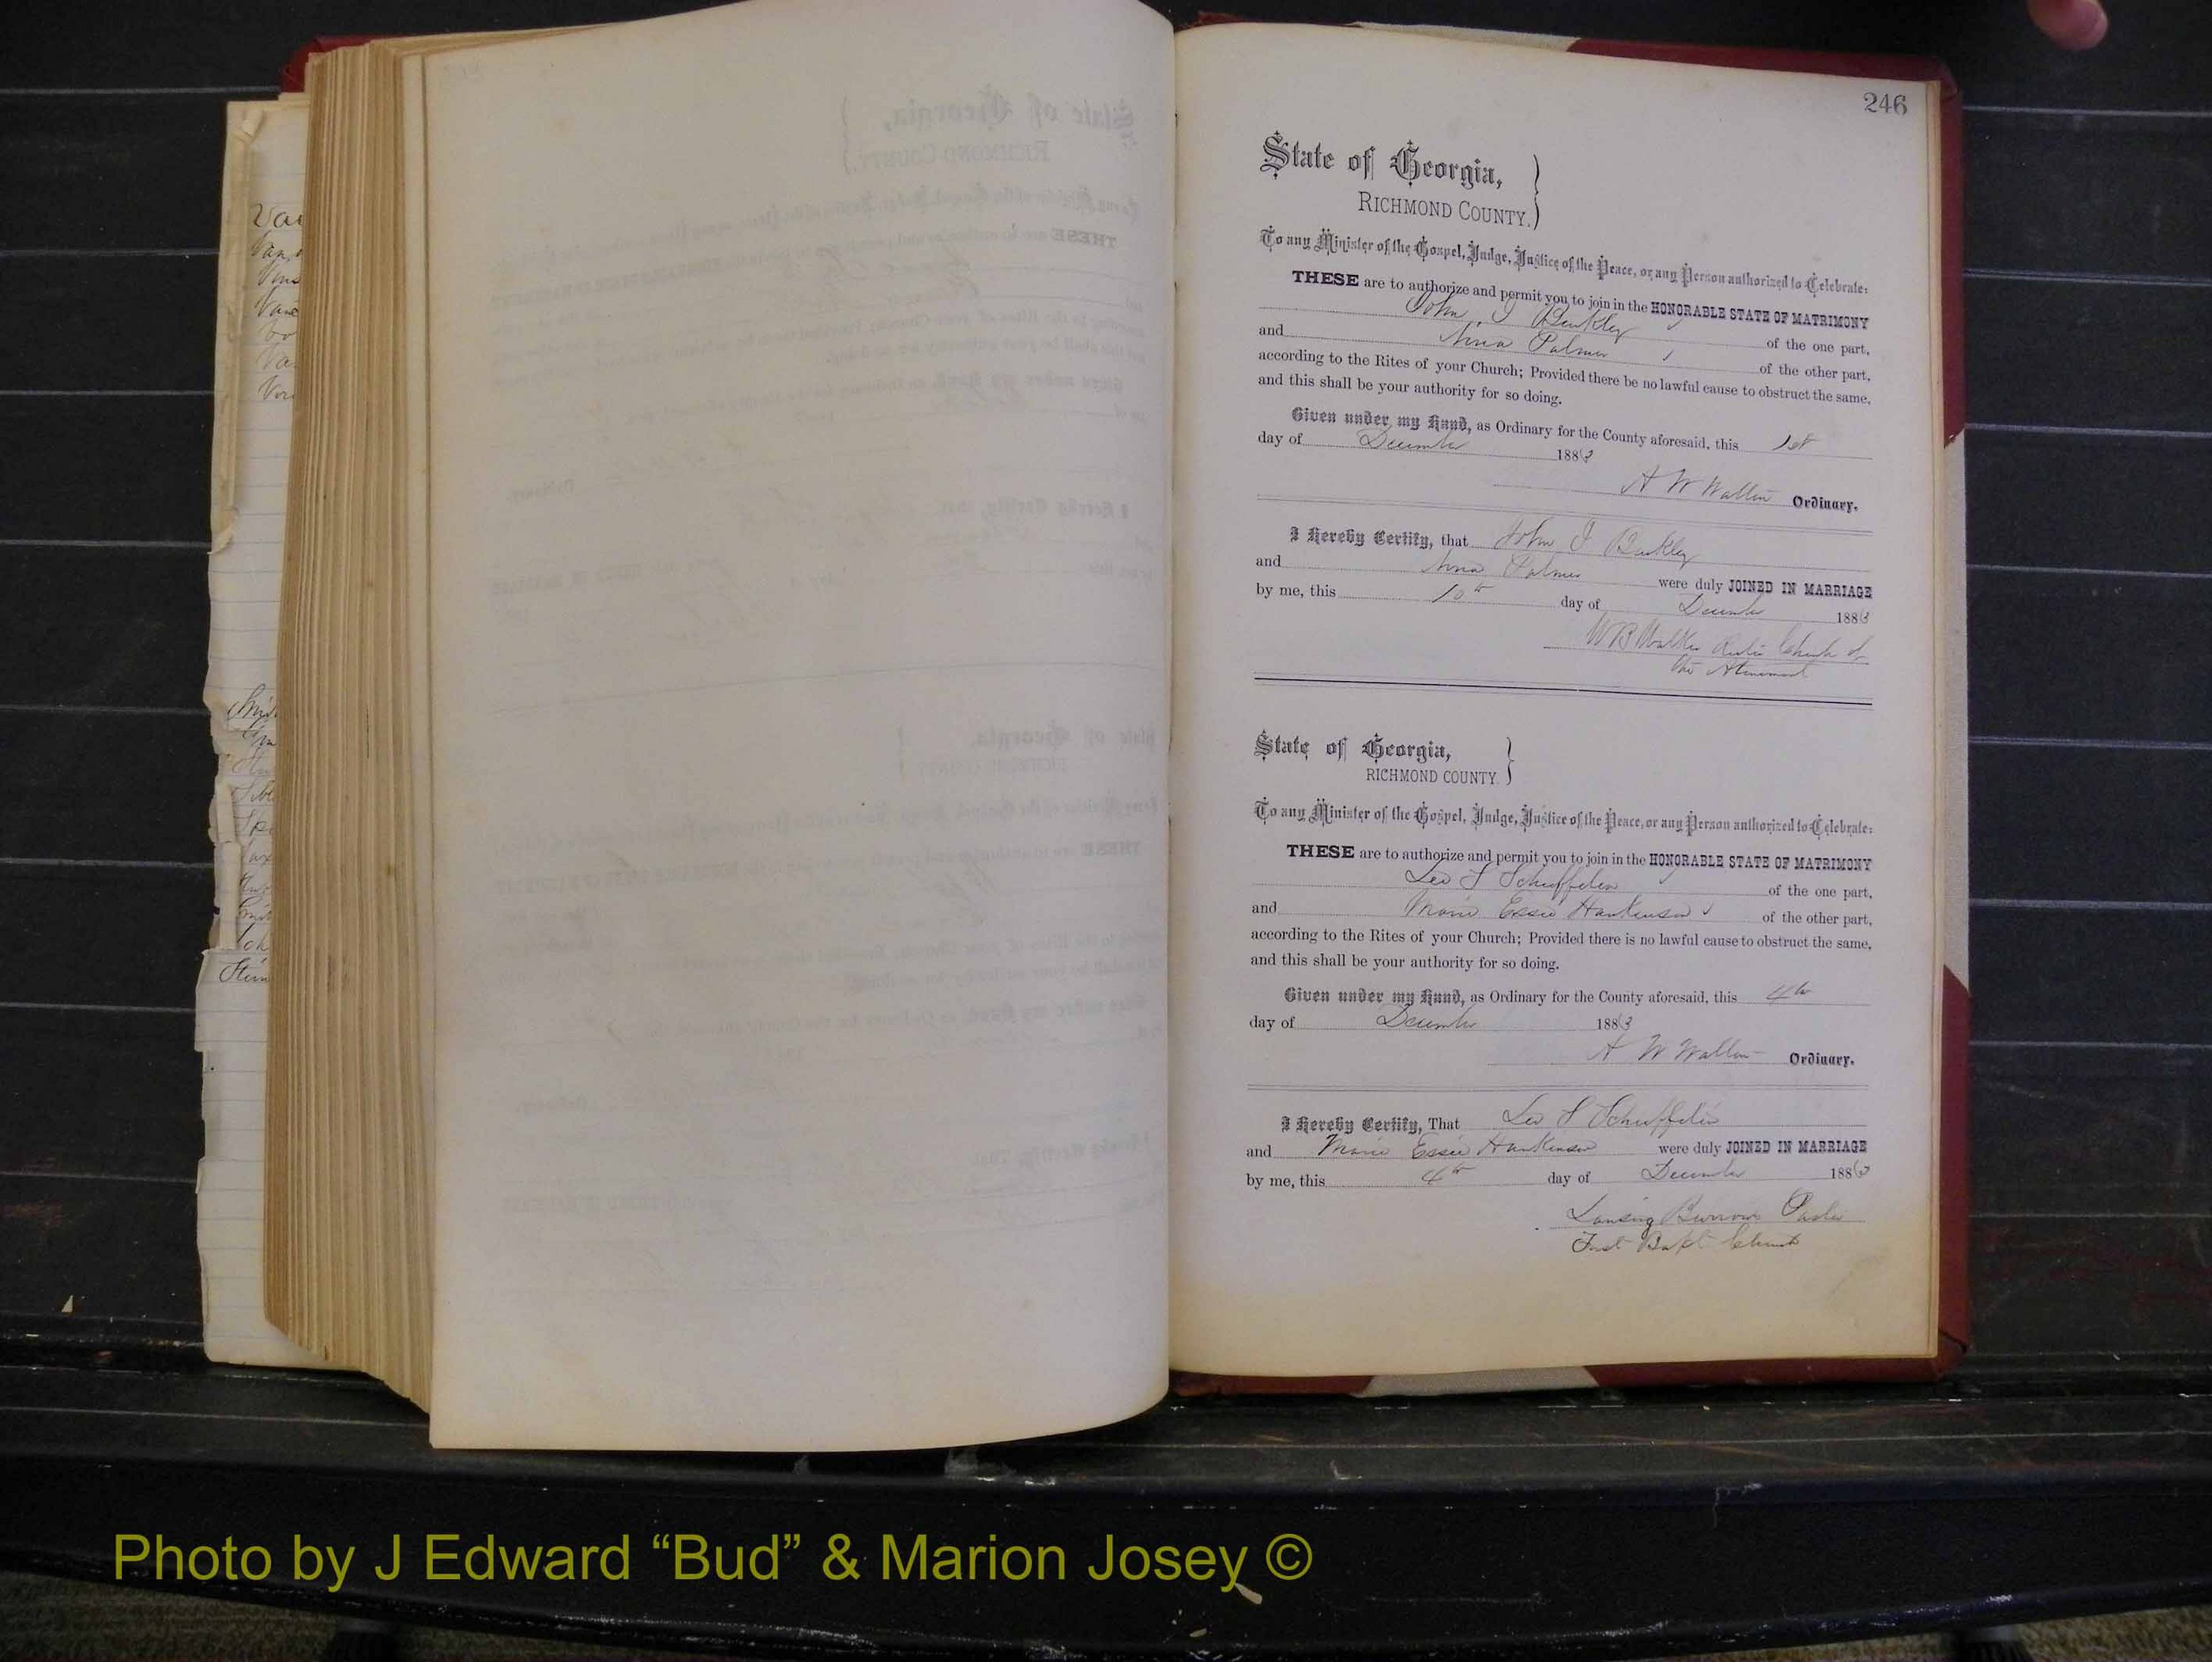 246
State of Georgia,
RICHMOND COUNTY.
To any Minister of the Gospel, Judge, Justice of the Peace, or any Person authorized to Celebrate:
THESE are to authorize and permit you to join in the HONORABLE STATE OF MATRIMONY
John J of the one part,
and Nina Palmer of the other part,
according to the Rites of your Church; Provided there be no lawful cause to obstruct the same,
and this shall be your authority for so doing.
Given under my Hand, as Ordinary for the County aforesaid, this 1st
day of December 1883
A W Walton Ordinary.
I Hereby Certify, that John J
and Nina Palmer were duly JOINED IN MARRIAGE
by me, this 10th day of December 1883
W B Walker Church of
the Atonement
State of Georgia,
RICHMOND COUNTY.
To any Minister of the Gospel, Judge, Justice of the Peace, or any Person authorized to Celebrate:
THESE are to authorize and permit you to join in the HONORABLE STATE OF MATRIMONY
Leo of the one part,
and Marie Essie Hankinson of the other part,
according to the Rites of your Church; Provided there is no lawful cause to obstruct the same,
and this shall be your authority for so doing.
Given under my Hand, as Ordinary for the County aforesaid, this 4th
day of December 1883
A W Walton Ordinary.
I Hereby Certify, That Leo
and Marie Essie Hankinson were duly JOINED IN MARRIAGE
by me, this 4th day of December 1883
Lansing Burrows Pastor
First Bapt Church
Photo by J Edward “Bud” & Marion Josey ©